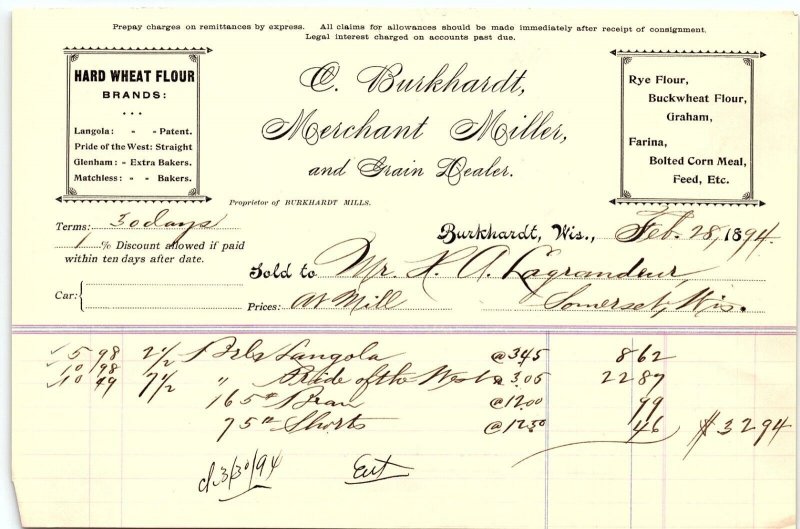 Prepay charges on remittances by express. All claims for allowances should be made immediately after receipt of consignment.
Legal interest charged on accounts past due.
HARD WHEAT FLOUR
BRANDS:
Langola: " " Patent.
Pride of the West: Straight
Glenham: " Extra Bakers.
Matchless: " " Bakers.
C. Burkhardt,
Merchant Miller,
and Grain Dealer.
Proprietor of BURKHARDT MILLS.
Rye Flour,
Buckwheat Flour,
Graham,
Farina,
Bolted Corn Meal,
Feed, Etc.
Terms: 30 days
1 % Discount allowed if paid
within ten days after date.
Burkhardt, Wis., Feb. 28, 1894.
Sold to Mr. A. Lagrandeur,
Car: Prices: At Mill Somerset, Wis.
5/98 2 1/2 Bbls Langola @ 3.45 8 62
10/98
10/49 7 1/2 " Pride of the West @ 3.05 22 87
165# Bran @ 12.00 99
75# Shorts @ 12.50 46 $32.94
3/30/94 Ent